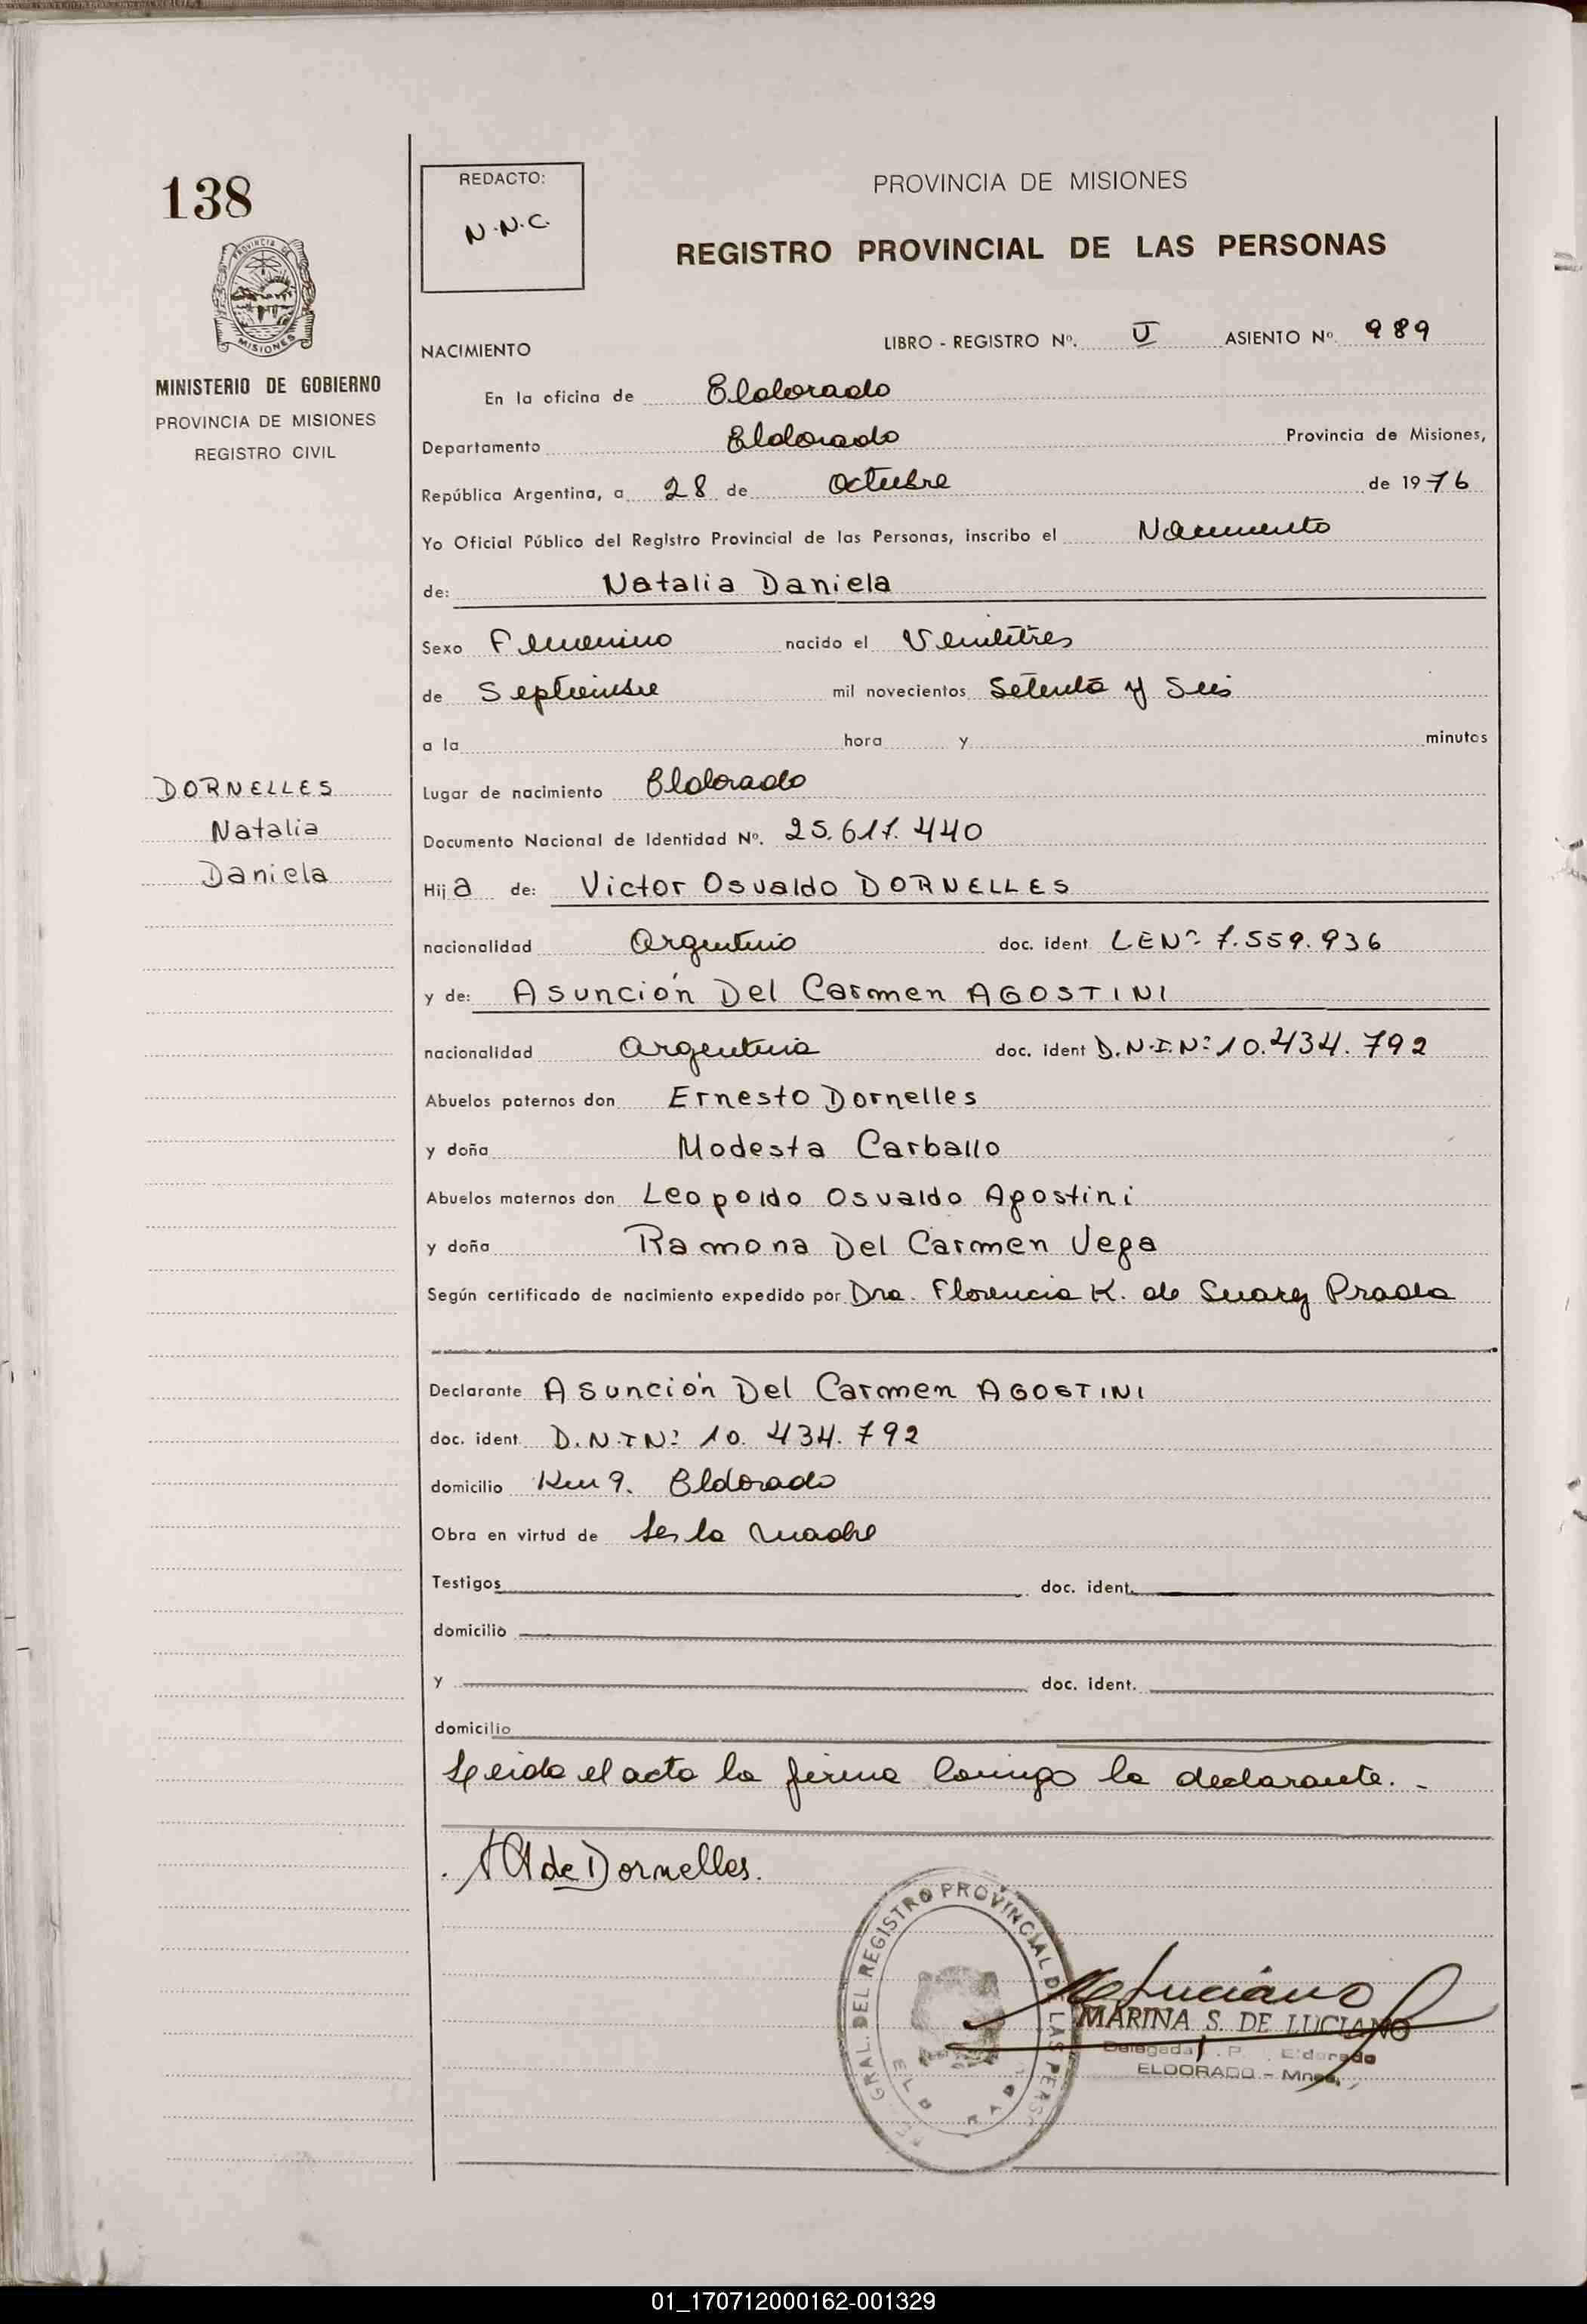 138
PROVINCIA DE MISIONES
MINISTERIO DE GOBIERNO
PROVINCIA DE MISIONES
REGISTRO CIVIL
DORNELLES
Natalia
Daniela
REDACTO:
N.N.C.
PROVINCIA DE MISIONES
REGISTRO PROVINCIAL DE LAS PERSONAS
NACIMIENTO LIBRO - REGISTRO Nº. ASIENTO Nº. 989
En la oficina de Eldorado
Departamento Eldorado Provincia de Misiones,
República Argentina, a 28 de Octubre de 1976
Yo Oficial Público del Registro Provincial de las Personas, inscribo el Nacimiento
de: Natalia Daniela
Sexo Femenino nacido el Veintitres
de Septiembre mil novecientos Setenta y Seis
a la hora y minutos
Lugar de nacimiento Eldorado
Documento Nacional de Identidad Nº. 25.617.440
Hija de: Victor Osvaldo DORNELLES
nacionalidad Argentino doc. ident LE Nº 7.559.936
y de: Asunción Del Carmen AGOSTINI
nacionalidad Argentina doc. ident D.N.I.Nº 10.434.792
Abuelos paternos don Ernesto Dornelles
y doña Modesta Carballo
Abuelos maternos don Leopoldo Osvaldo Agostini
y doña Ramona Del Carmen Vega
Según certificado de nacimiento expedido por Dra. Florencia K. de Suarez Prada
Declarante Asunción Del Carmen AGOSTINI
doc. ident D.N.I Nº 10.434.792
domicilio Km 9. Eldorado
Obra en virtud de ser la madre
Testigos doc. ident.
domicilio
y doc. ident.
domicilio
Leida el acta la firma conmigo la declarante.-
A A de Dornelles.
GRAL. DEL REGISTRO PROVINCIAL DE LAS PERS
MARINA S. DE LUCIANO
Delegada P. Eldorado
ELDORADO - Mnes.
01_170712000162-001329